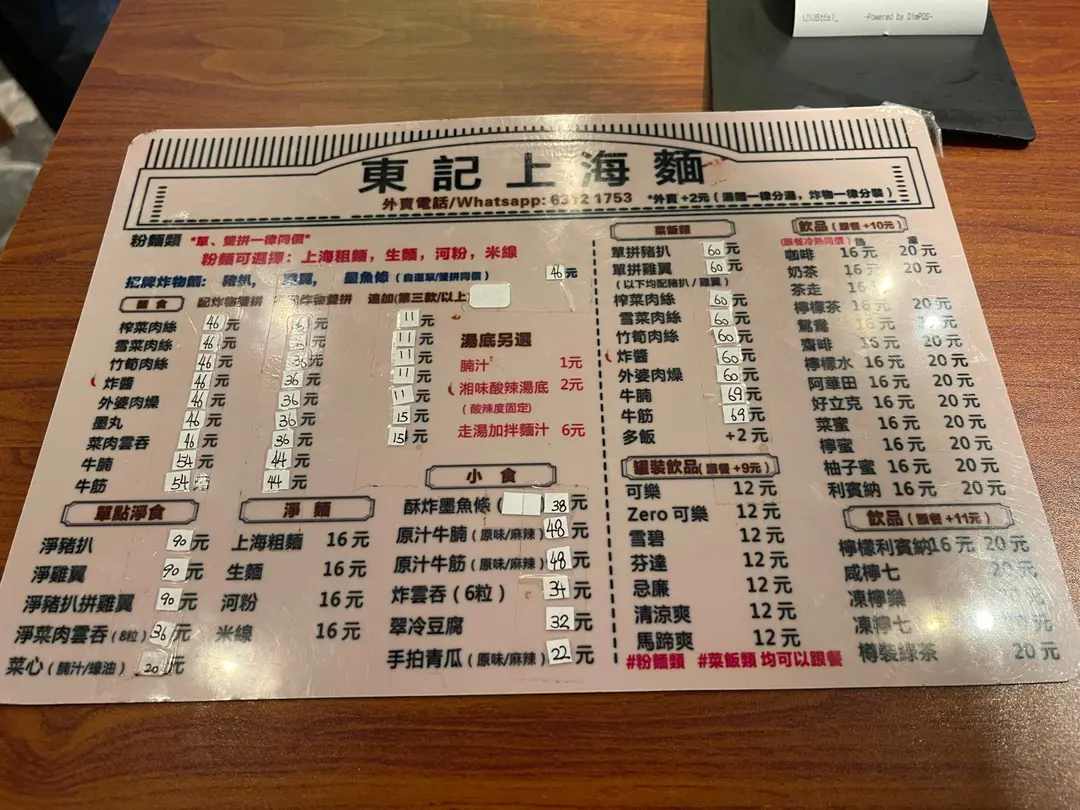 -Powered by DimPOS-
東記上海麵
外賣電話/Whatsapp: 63 2 1753 *外賣 +2元 ( 湯麵一律分湯，炸物一律分裝 )
粉麵類 *單、雙拼一律同價*
粉麵可選擇：上海粗麵，生麵，河粉，米線
招牌炸物餸： 豬扒， 翼， 墨魚條 ( 自選單/雙拼同價 ) 46 元
單食 配炸物雙拼 炸物雙拼 追加(第三款/以上)
榨菜肉絲 46 元 36 元 11 元
雪菜肉絲 46 元 36 元 11 元
竹筍肉絲 46 元 36 元 11 元
炸醬 46 元 36 元 11 元
外婆肉燥 46 元 36 元 11 元
墨丸 46 元 36 元 15 元
菜肉雲吞 46 元 36 元 15 元
牛腩 54 元 44 元
牛筋 54 元 44 元
湯底另選
腩汁 1元
湘味酸辣湯底 2元
( 酸辣度固定)
走湯加拌麵汁 6元
單點淨食
淨豬扒 90 元
淨雞翼 90 元
淨豬扒拼雞翼 90 元
淨菜肉雲吞 ( 8粒 ) 36 元
菜心 ( 腩汁/蠔油 ) 20 元
淨麵
上海粗麵 16 元
生麵 16 元
河粉 16 元
米線 16 元
小食
酥炸墨魚條 ( ) 38 元
原汁牛腩 ( 原味/麻辣 ) 48 元
原汁牛筋 ( 原味/麻辣 ) 48 元
炸雲吞 ( 6粒 ) 34 元
翠冷豆腐 32 元
手拍青瓜 ( 原味/麻辣 ) 22 元
菜飯類
單拼豬扒 60 元
單拼雞翼 60 元
( 以下均配豬扒 / 雞翼 )
榨菜肉絲 60 元
雪菜肉絲 60 元
竹筍肉絲 60 元
炸醬 60 元
外婆肉燥 60 元
牛腩 69 元
牛筋 69 元
多飯 +2 元
罐裝飲品 ( 跟餐 +9元 )
可樂 12 元
Zero 可樂 12 元
雪碧 12 元
芬達 12 元
忌廉 12 元
清涼爽 12 元
馬蹄爽 12 元
#粉麵類 #菜飯類 均可以跟餐
飲品 ( 跟餐 +10元 )
(跟餐冷熱同價) 熱 凍
咖啡 16 元 20 元
奶茶 16 元 20 元
茶走 16
檸檬茶 16 元 20 元
鴛鴦 16 元 20 元
齋啡 16 元 20 元
檸檬水 16 元 20 元
阿華田 16 元 20 元
好立克 16 元 20 元
菜蜜 16 元 20 元
檸蜜 16 元 20 元
柚子蜜 16 元 20 元
利賓納 16 元 20 元
飲品 ( 跟餐 +11元 )
檸檬利賓納16 元 20 元
咸檸七 元
凍檸樂
凍檸七
樽裝綠茶 20 元